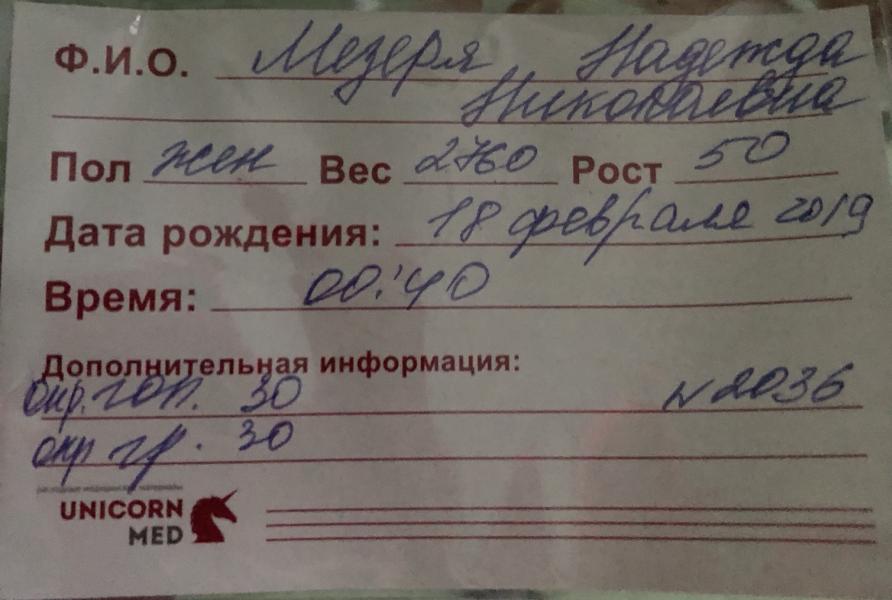 Ф.И.О. Мезеря Надежда
Николаевна
Пол жен Вес 2760 Рост 50
Дата рождения: 18 февраля 2019
Время: 00:40
Дополнительная информация:
окр. гол. 30 N 2036
окр гр. 30
UNICORN
MED